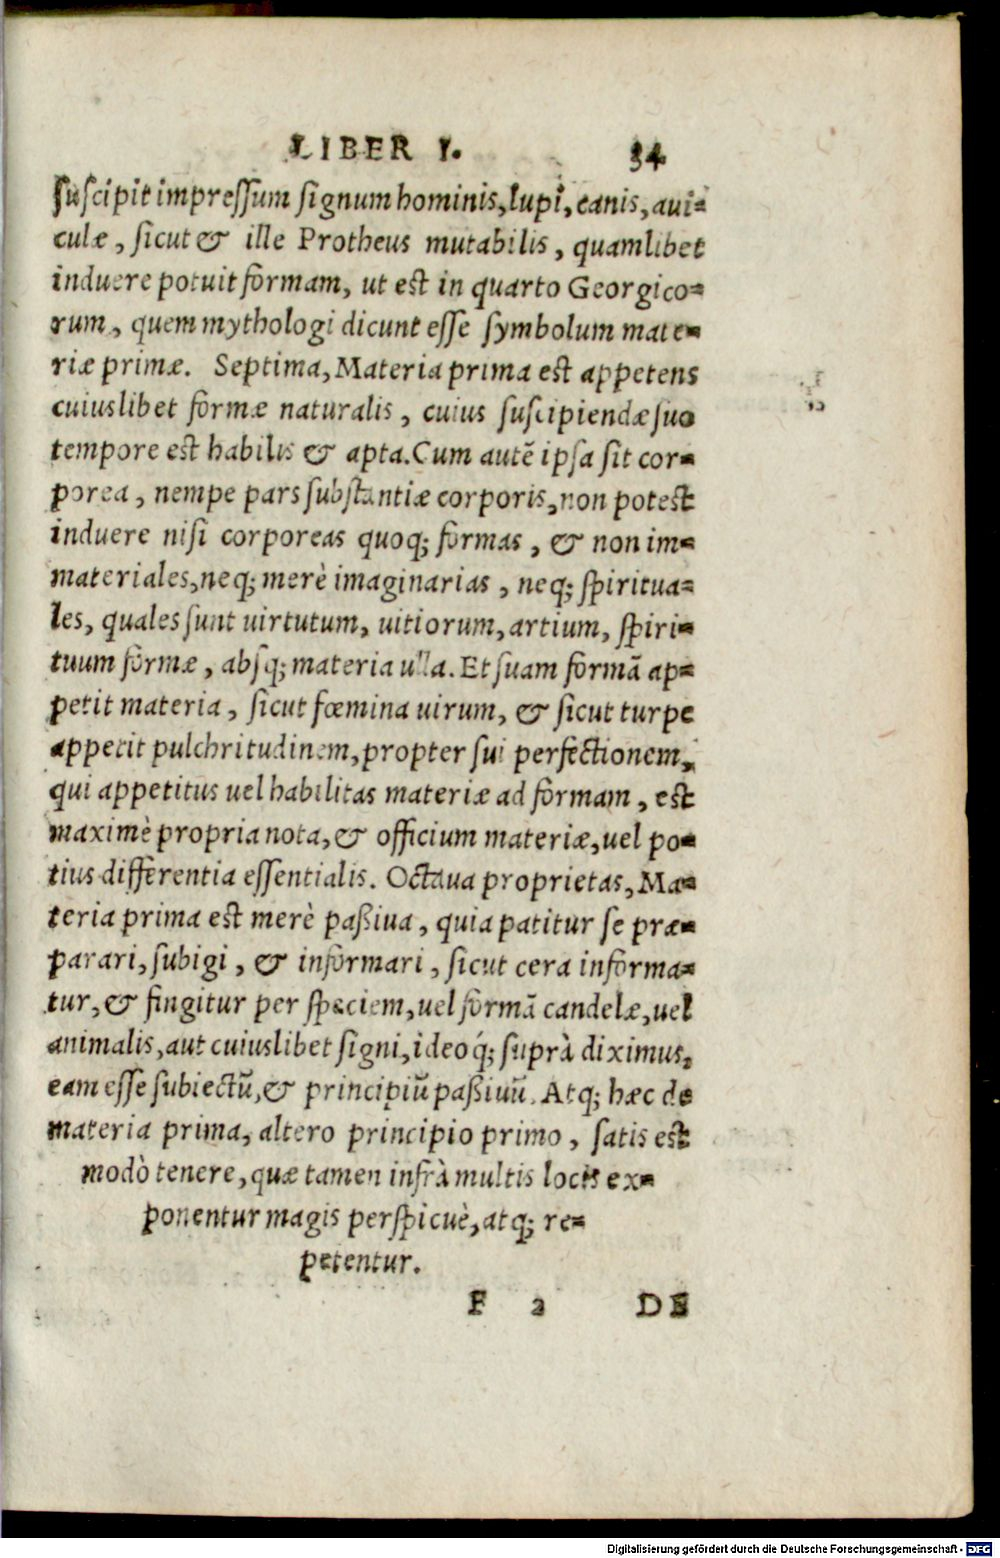 LIBER I. 34
suscipit impressum signum hominis, lupi, canis, aui-
culæ, sicut & ille Protheus mutabilis, quamlibet
induere potuit formam, ut est in quarto Georgico-
rum, quem mythologi dicunt esse symbolum mate-
riæ primæ. Septima, Materia prima est appetens
cuiuslibet formæ naturalis, cuius suscipiendæ suo
tempore est habilis & apta. Cum autẽ ipsa sit cor-
porea, nempe pars substantiæ corporis, non potest
induere nisi corporeas quoq; formas, & non im-
materiales, neq; merè imaginarias, neq; spiritua-
les, quales sunt uirtutum, uitiorum, artium, spiri-
tuum formæ, absq; materia ulla. Et suam formã ap-
petit materia, sicut fœmina uirum, & sicut turpe
appetit pulchritudinem, propter sui perfectionem,
qui appetitus uel habilitas materiæ ad formam, est
maximè propria nota, & officium materiæ, uel po-
tius differentia essentialis. Octaua proprietas, Ma-
teria prima est merè paßiua, quia patitur se præ-
parari, subigi, & informari, sicut cera informa-
tur, & fingitur per speciem, uel formã candelæ, uel
animalis, aut cuiuslibet signi, ideoq́; suprà diximus,
eam esse subiectũ, & principiũ paßiuũ. Atq; hæc de
materia prima, altero principio primo, satis est
modò tenere, quæ tamen infrà multis locis ex-
ponentur magis perspicuè, atq; re-
petentur.
F 2 DE
Digitalisierung gefördert durch die Deutsche Forschungsgemeinschaft - DFG